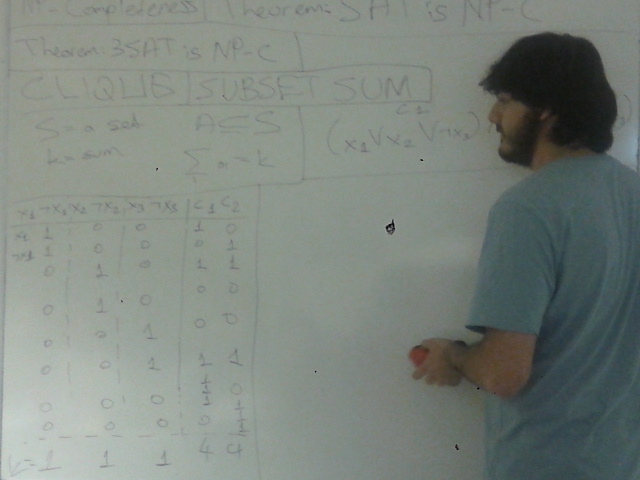 NP-Completeness Theorem: SAT is NP-C
Theorem: 3SAT is NP-C
CLIQUE SUBSET SUM
S = a set A ⊆ S
k = sum Σ a = k
C1
(x1 ∨ x2 ∨ ¬x3)
x1 ¬x1 x2 ¬x2 x3 ¬x3 C1 C2
x1 1 0 0 1 0
¬x1 1 0 0 0 1
0 1 0 1 1
0 1 0 0 0
0 0 1 0 0
0 0 1 1 1
0 0 0 0
0 0 0 0
k = 1 1 1 4 4